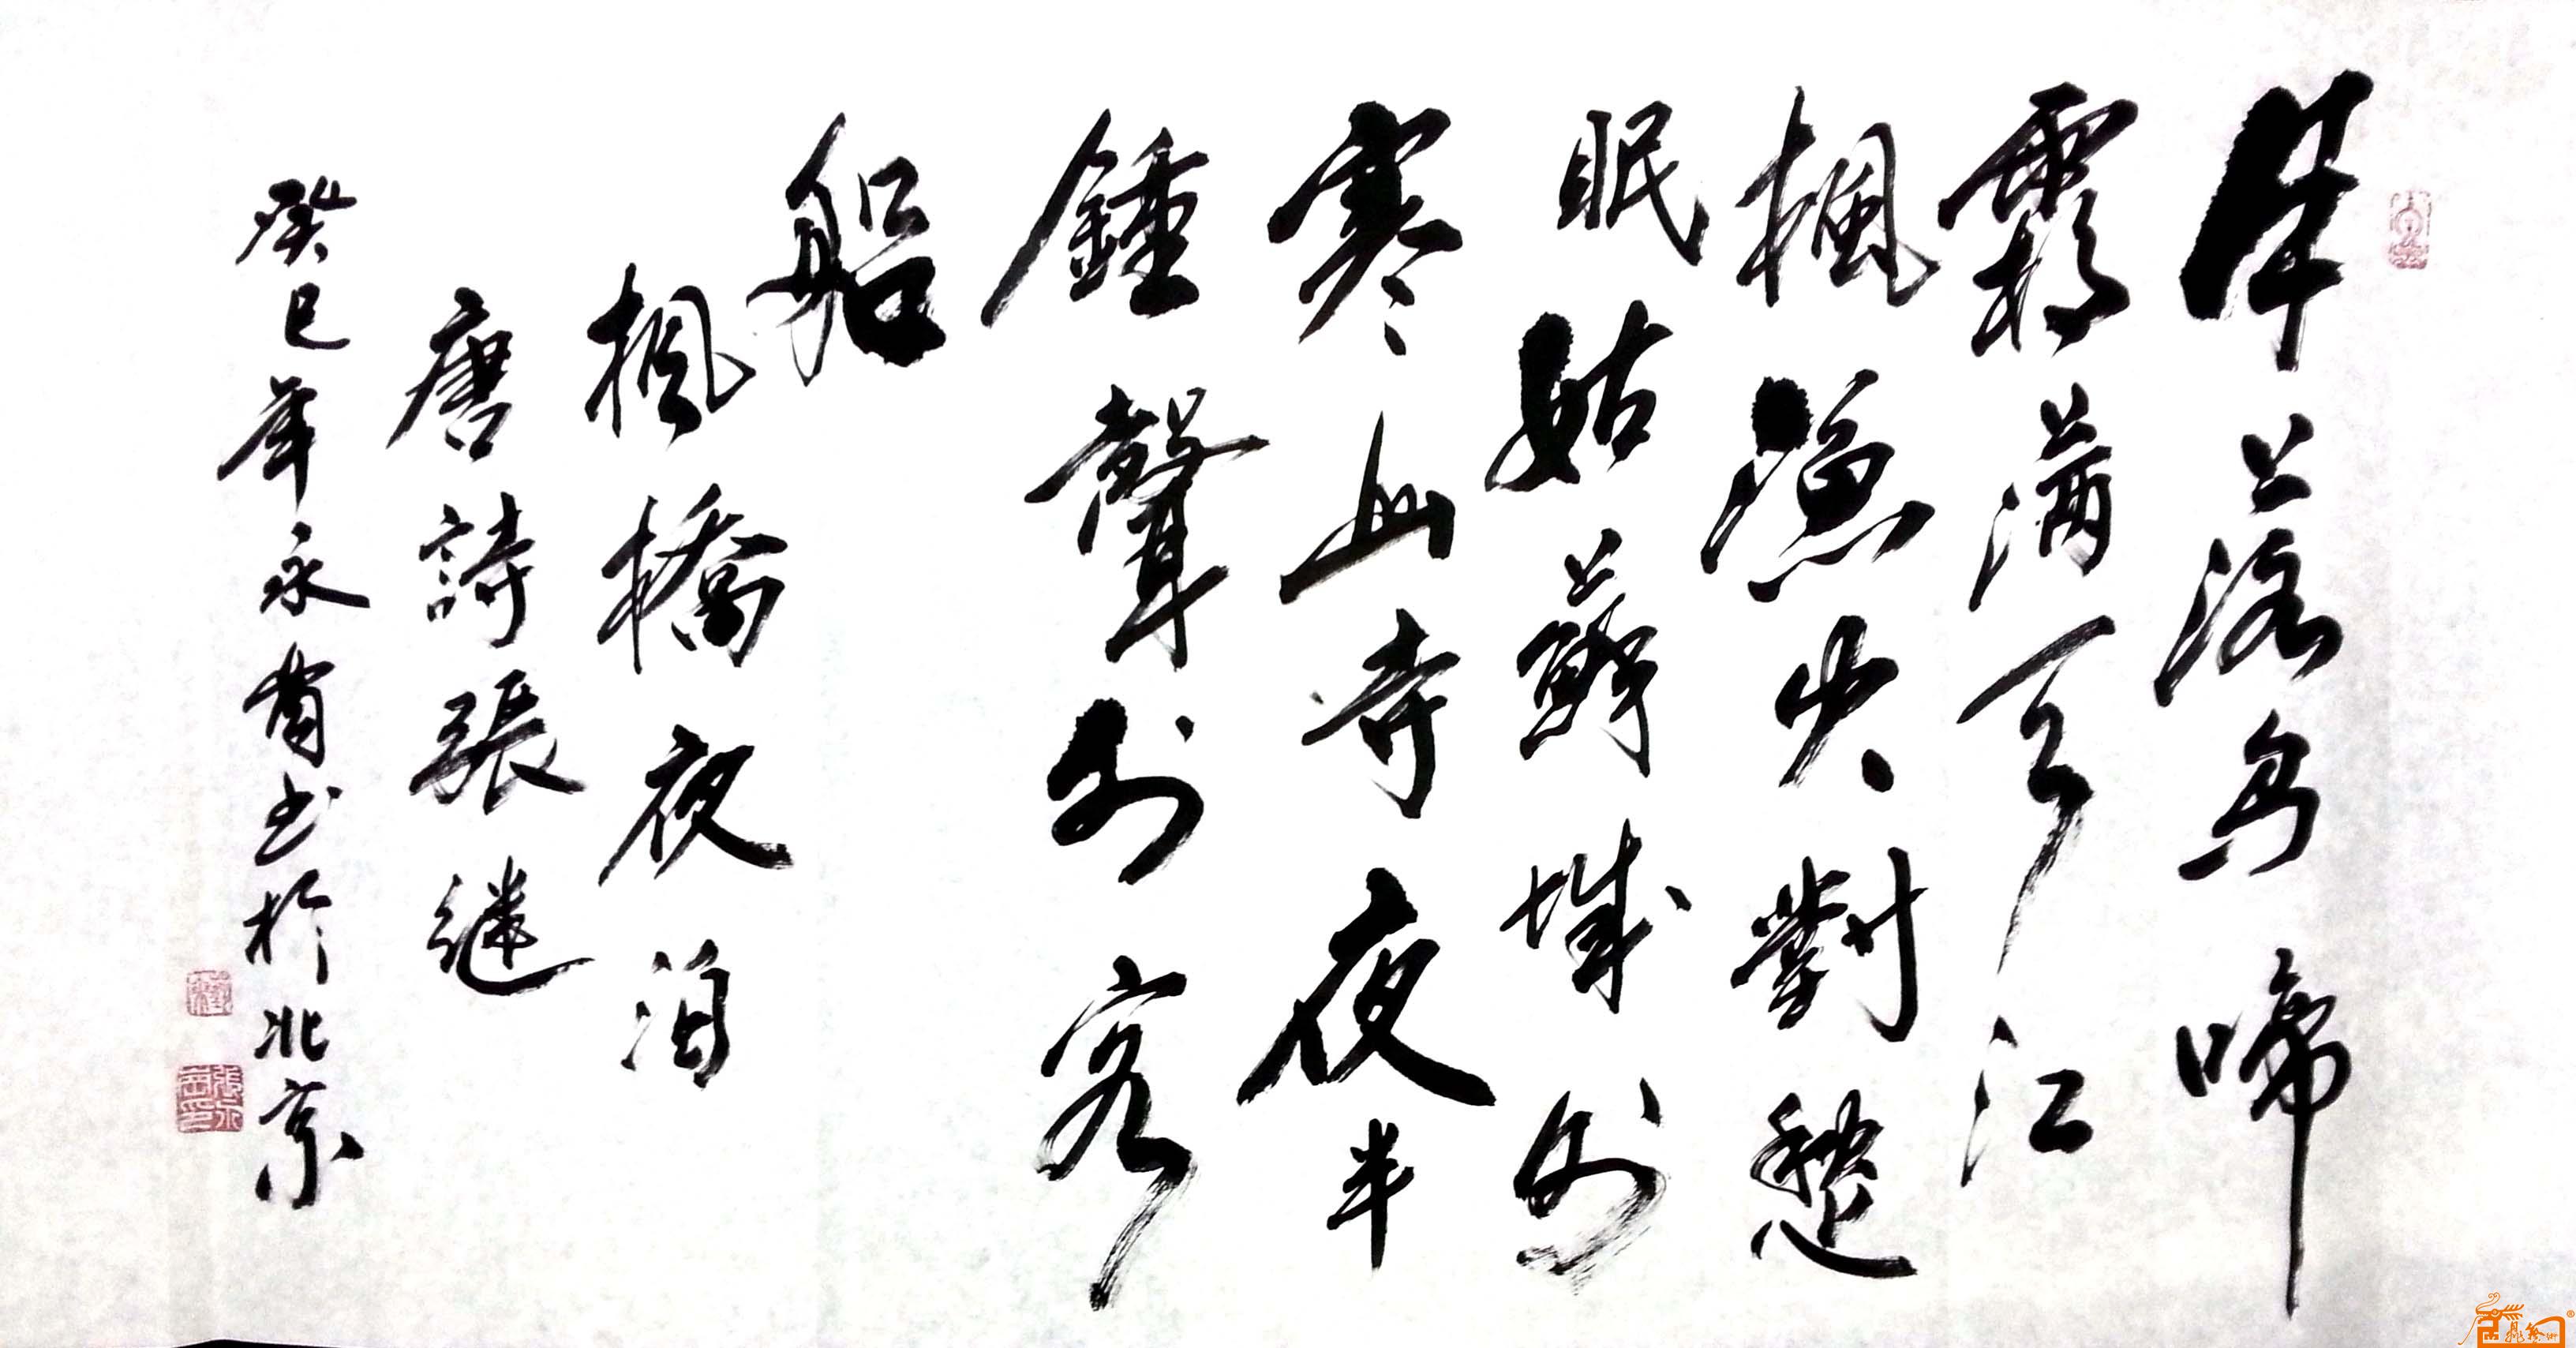 月落烏啼
霜滿天江
楓漁火對愁
眠姑蘇城外
寒山寺夜半
鍾聲到客
船
楓橋夜泊
唐詩張继
癸巳年永书於北京